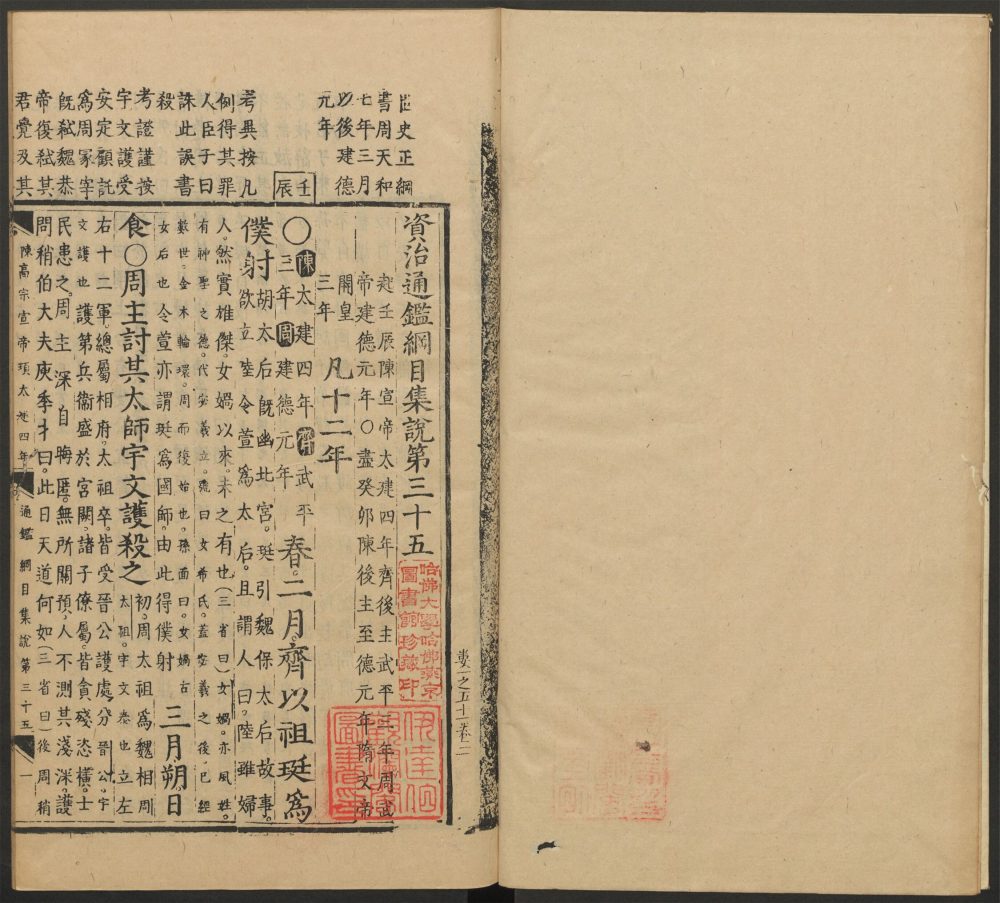 世史正綱
書周天和
七年三月
以後建德
元年
考異按凡
例得其罪
人臣子曰
誅此誤書
殺
考證謹按
宇文護受
安定顧託
爲周冢宰
既弑魏恭
帝復弑其
君覺及其
壬辰
資治通鑑綱目集說第三十五
起壬辰陳宣帝太建四年齊後主武平三年周武
帝建德元年〇盡癸卯陳後主至德元年隋文帝
開皇
三年
凡十二年
〇陳太建四年齊武平
三年周建德元年
春二月齊以祖珽爲
僕射
胡太后既幽北宮。珽引魏保太后故事。
欲立陸令萱爲太后。且謂人曰。陸雖婦
人。然實雄傑。女媧以來。未之有也(三省曰)女媧。亦風姓。
有神聖之德。代宓羲立。號曰女希氏。蓋宓羲之後。已經
數世。金木輪環。周而復始也。孫面曰。女媧古
女后也令萱亦謂珽爲國師。由此得僕射
三月朔。日
食〇周主討其太師宇文護殺之
初。周太祖爲魏相
太祖。宇文泰也立左
右十二軍。總屬相府。太祖卒。皆受晉公護處分
晉公。宇
文護也
護第兵衞盛於宮闕。諸子僚屬。皆貪殘恣橫。士
民患之。周主深自晦匿。無所關預。人不測其淺深。護
問稍伯大夫庾季才曰。此日天道何如(三省曰)後周稍
陳高宗宣帝頊太建四年
通鑑綱目集說第三十五
一
哈佛大學哈佛燕京
圖書館珍藏印